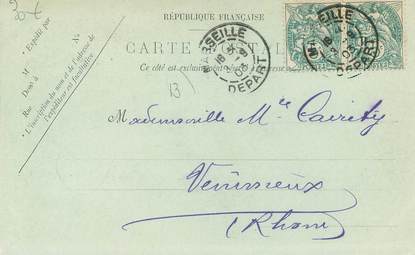 20 €
RÉPUBLIQUE FRANÇAISE
CARTE POSTALE
Ce côté est exclusivement
N°
Expédié par
M
Demt à
Rue
L'inscription du nom et de l'adresse de
l'expéditeur est facultative.
MARSEILLE
18
03
DEPART
MARSEILLE
18
03
DEPART
13
Mademoiselle Mlle
Vénissieux
(Rhône)